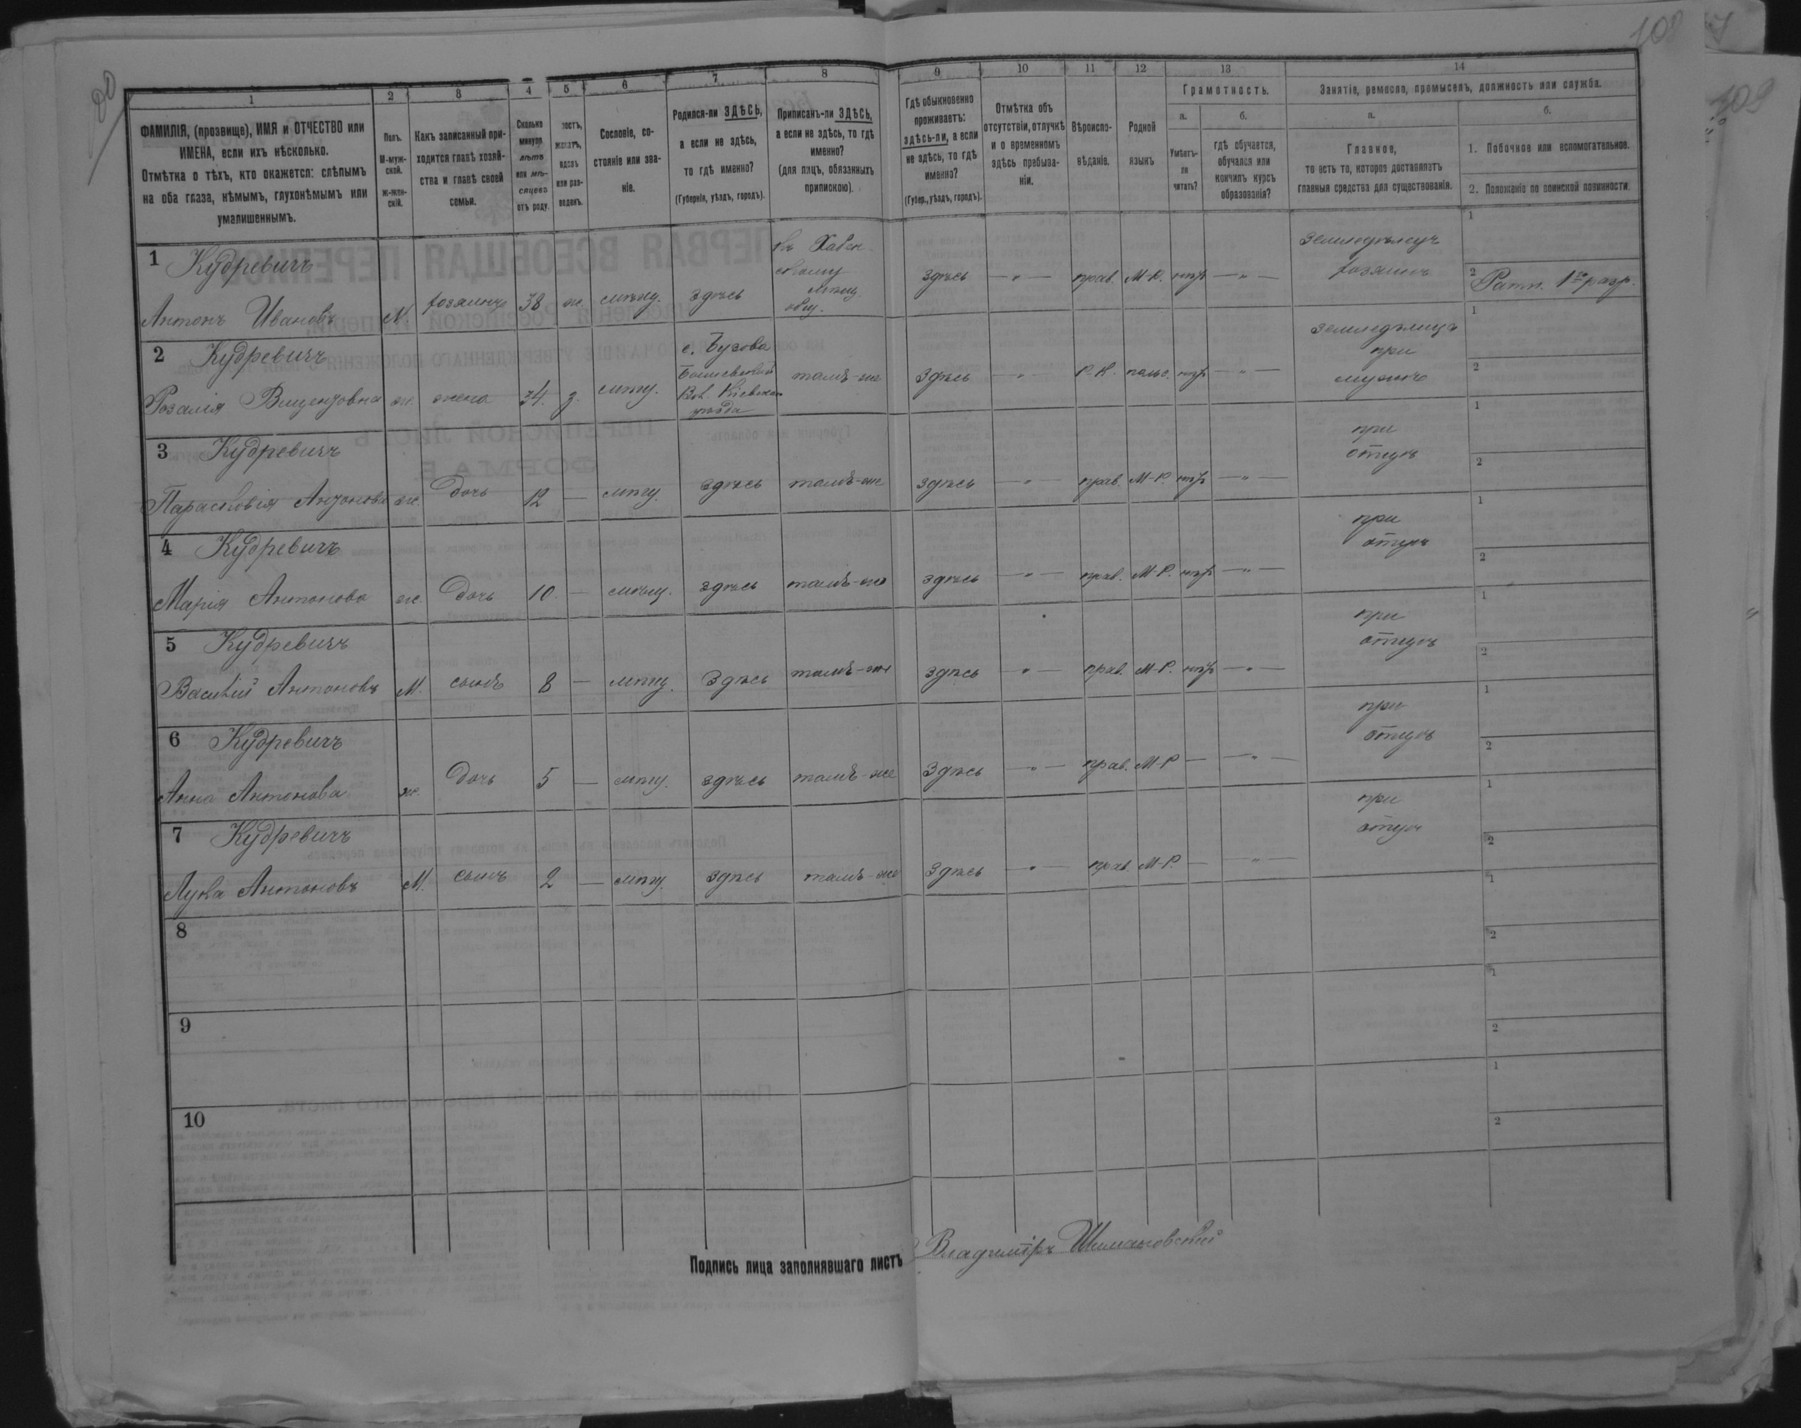 1 2 3 4 5 6 7 8 9 10 11 12 13 14
ФАМИЛІЯ, (прозвище), ИМЯ и ОТЧЕСТВО или
ИМЕНА, если ихъ нѣсколько.
Отмѣтка о тѣхъ, кто окажется: слѣпымъ
на оба глаза, нѣмымъ, глухонѣмымъ или
умалишеннымъ.
Полъ.
М-муж-
ской.
Ж-жен-
скій.
Какъ записанный при-
ходится главѣ хозяй-
ства и главѣ своей
семьи.
Сколько
минуло
лѣтъ
или мѣ-
сяцевъ
отъ роду.
женатъ,
вдовъ
или раз-
веденъ.
Сословіе, со-
стояніе или зва-
ніе.
Родился-ли ЗДѢСЬ,
а если не здѣсь,
то гдѣ именно?
(Губернія, уѣздъ, городъ).
Приписанъ-ли ЗДѢСЬ,
а если не здѣсь, то гдѣ
именно?
(для лицъ, обязанныхъ
припискою).
Гдѣ обыкновенно
проживаетъ:
здѣсь-ли, а если
не здѣсь, то гдѣ
именно?
(Губер., уѣздъ, городъ).
Отмѣтка объ
отсутствіи, отлучкѣ
и о временномъ
здѣсь пребыва-
ніи.
Вѣроиспо-
вѣданіе.
Родной
языкъ
Грамотность.
а.
Умѣетъ-
ли
читать?
б.
гдѣ обучается,
обучался или
кончилъ курсъ
образованія?
Занятіе, ремесло, промыселъ, должность или служба.
а.
Главное,
то есть то, которое доставляетъ
главныя средства для существованія.
б.
1. Побочное или вспомогательное.
2. Положеніе по воинской повинности
1 Кудревичъ
Антонъ Ивановъ М хозяинъ 38 ж. мѣщ. здѣсь
общ.
здѣсь — " — прав. М-Р. нѣтъ — " —
хозяинъ
1
2 Ратн. 1го разр.
2 Кудревичъ
Розалія Викентьевна ж. жена 34. з. мѣщ.
с. Бузова
Вол. Кіевскаго
уѣзда
тамъ-же здѣсь — " — Р.К. польс. нѣтъ — " —
при
мужѣ
1
2
3 Кудревичъ
Парасковія Антонова ж. дочь 12 — мѣщ. здѣсь тамъ-же здѣсь — " — прав. М-Р нѣтъ — " —
при
отцѣ
1
2
4 Кудревичъ
Марія Антонова ж. дочь 10 — мѣщ. здѣсь тамъ-же здѣсь — " — прав. М-Р. нѣтъ — " —
при
отцѣ
1
2
5 Кудревичъ
Василій Антоновъ М. сынъ 8 — мѣщ. здѣсь тамъ-же здѣсь — " — прав. М-Р. нѣтъ — " —
при
отцѣ
1
2
6 Кудревичъ
Анна Антонова ж. дочь 5 — мѣщ. здѣсь тамъ-же здѣсь — " — прав. М-Р — — " —
при
отцѣ
1
2
7 Кудревичъ
Лука Антоновъ М. сынъ 2 — мѣщ. здѣсь тамъ-же здѣсь — " — прав. М-Р — — " —
при
отцѣ
1
2
8
1
2
9
1
2
10
1
2
Подпись лица заполнявшаго листъ Владиміръ Шимановскій